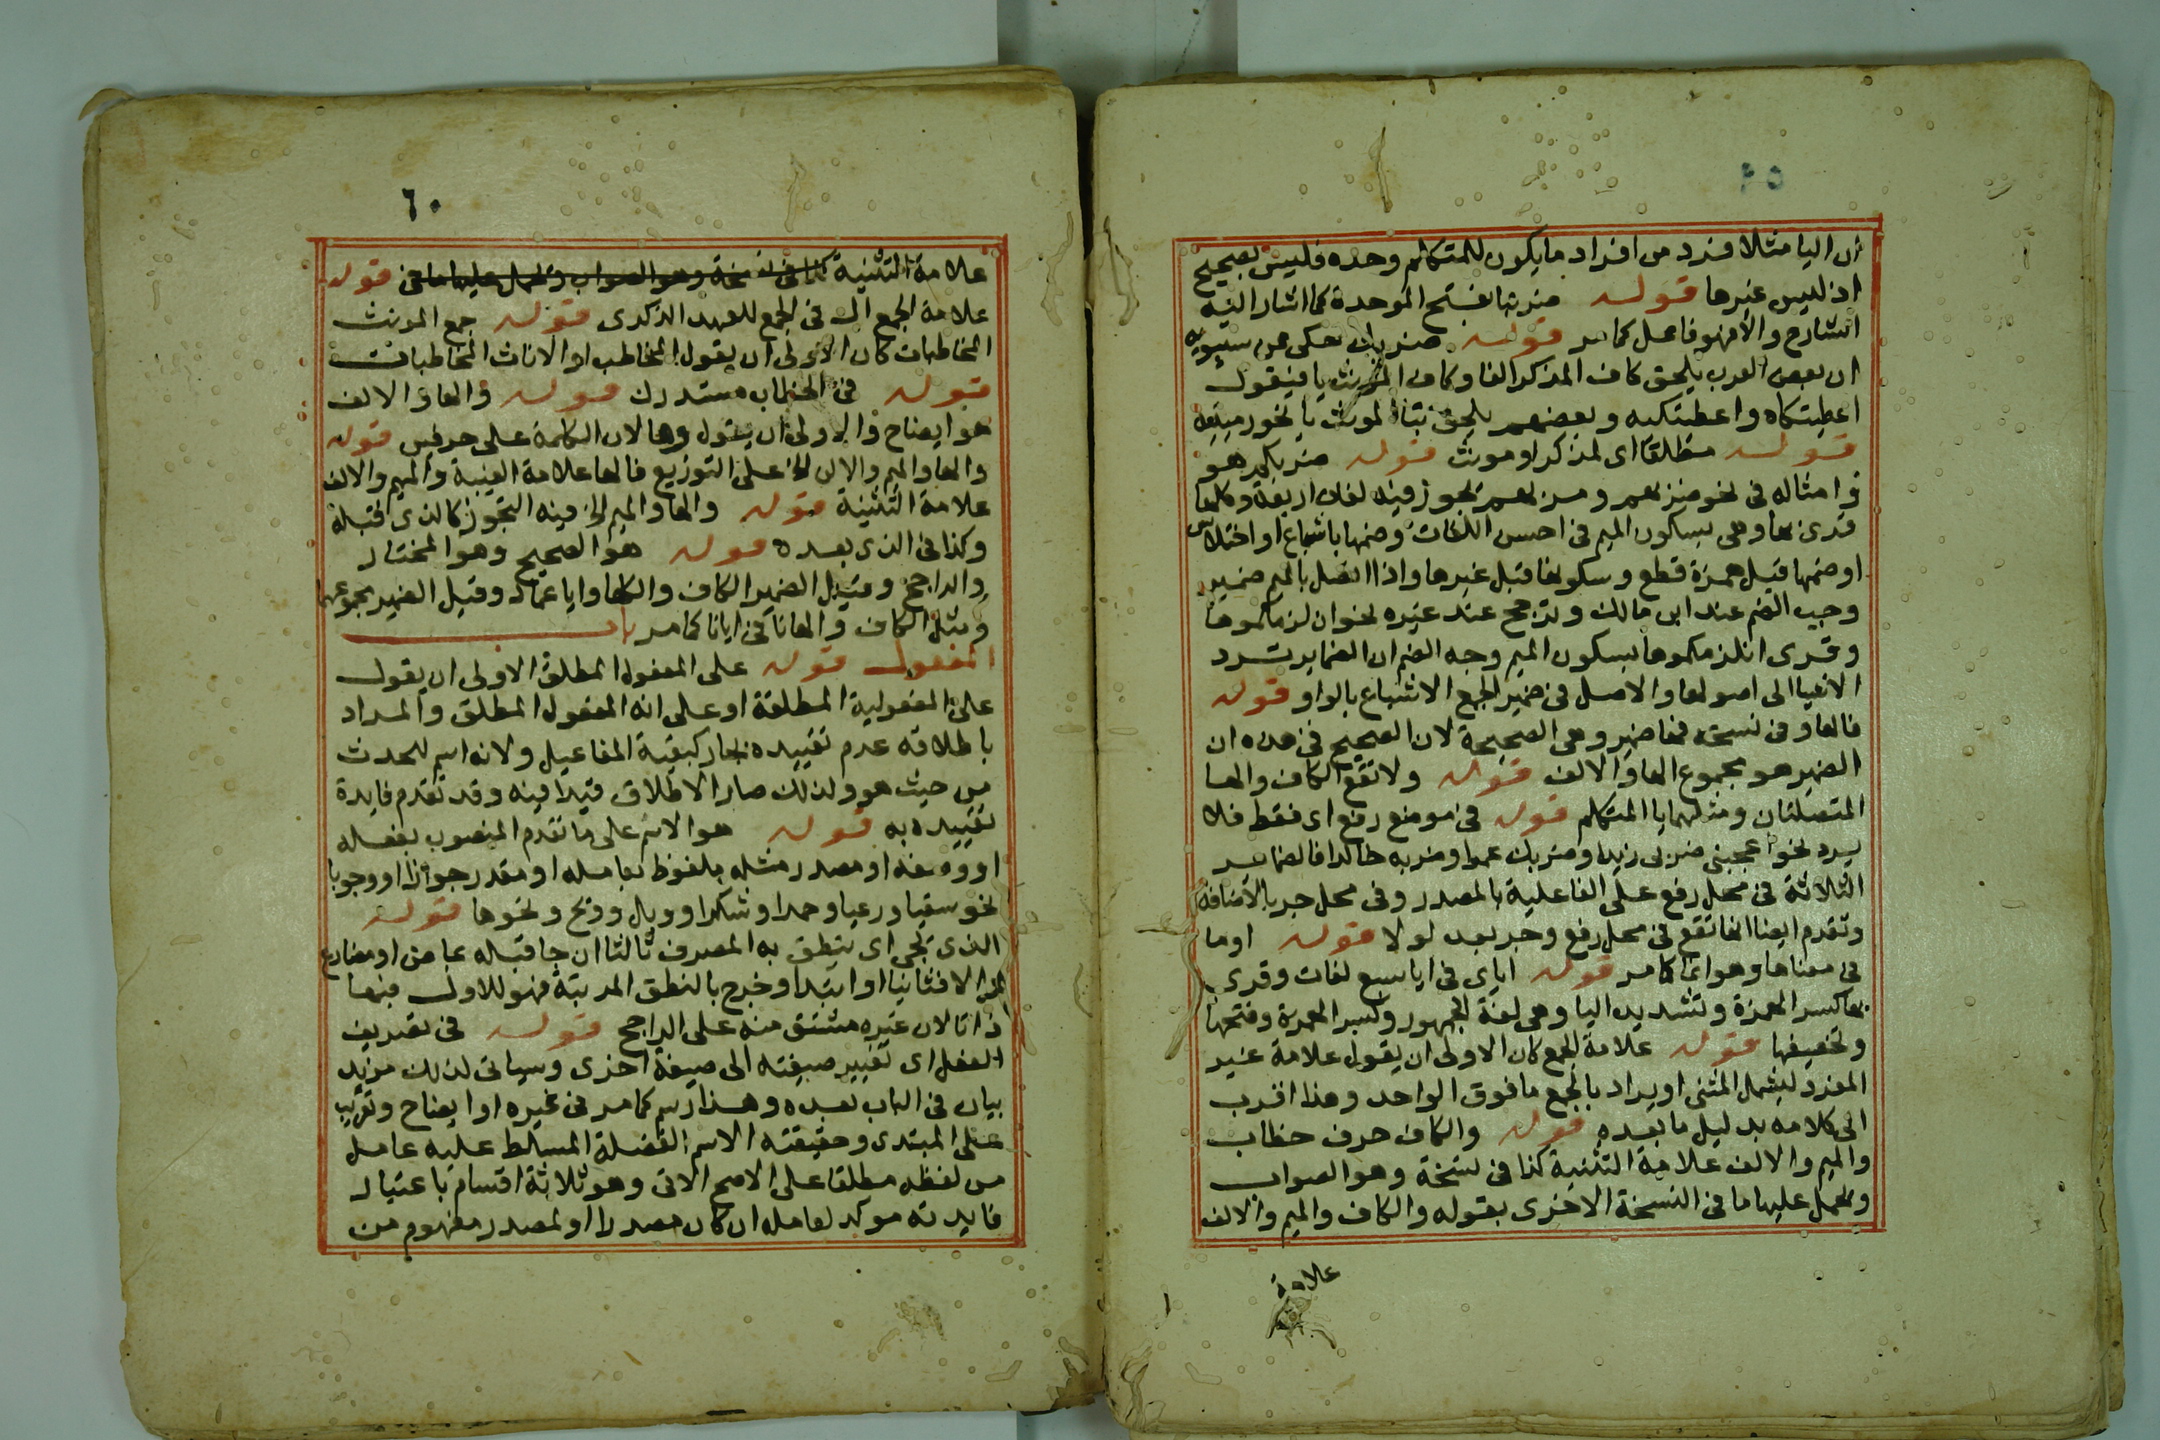 ٥٩
ان اليا مثلا فرد من افراد ما يكون للمتكلم وحده فليس بصحيح
اذ ليس غيرها قوله ضربنا بفتح الموحدة كما اشار اليه
الشارح والا فهو فاعل كما مر قوله ضربك حكى عن سيبويه
ان بعض العرب يلحق كاف المذكر الفا وكاف المونث يا فيقول
اعطيتكاه واعطيتكيه وبعضهم يلحق بتا المونث يا نحو رميتيه
قوله مطلقا اى لمذكر او مونث قوله ضربكم هو
وامثاله فى نحو ضربهم ومربهم يجوز فيه لغات اربعة وكلها
قرى بها وهى سكون الميم فى احسن اللغات وضمها باشباع او اختلاس
او ضمها قبل همزة قطع وسكونها قبل غيرها واذا اتصل بالميم ضمير
وجب الضم عند ابى مالك وترجح عند غيره نحو ان لزمكموها
وقرى انلزمكموها بسكون الميم وجه الضم ان الضماير ترد
الاشيا الى اصولها والاصل فى ضمير الجمع الاشباع بالواو قوله
فالها وفى نسخة فها ضمير وهى الصحيحة لان الصحيح فى هذه ان
الضمير هو مجموع الها والالف قوله ولا تقع الكاف والها
المتصلتان ومثلهما يا المتكلم قوله فى موضع رفع اى فقط فلا
يرد نحو اعجبنى ضربى زيدا وضربك عمرا وضربه خالدا فالضماير
الثلاثة فى محل رفع على الفاعلية بالمصدر وفى محل جر بالاضافة
وتقدم ايضا انها تقع فى محل رفع وجر بعد لولا قوله او ما
فى معناها وهو انما كما مر قوله اياى فى ايا سبع لغات وقرى
بها كسر الهمزة وتشديد اليا وهى لغة الجمهور وكسر الهمزة وفتحها
وتخفيفها قوله علامة الجمع كان الاولى ان يقول علامة غير
المفرد ليشمل المثنى او يراد بالجمع ما فوق الواحد وهذا اقرب
الى كلامه بدليل ما بعده قوله والكاف حرف خطاب
والميم والالف علامة التثنية كذا فى نسخة وهو الصواب
ويحمل عليها ما فى النسخة الاخرى بقوله والكاف والميم والالف
علامة
٦٠
علامة التثنية كذا فى نسخة وهو الصواب ويحمل عليها ما فى قوله
علامة الجمع ال فى الجمع للعهد الذكرى قوله جمع المونث
المخاطبات كان الاولى ان يقول المخاطب او الاناث المخاطبات
قوله فى الخطاب مستدرك قوله والها والالف
هو ايضاح والاولى ان يقول وها لان الكلمة على حرفين قوله
والها والميم والالف الخ على التوزيع فالها علامة الغيبة والميم والالف
علامة التثنية قوله والها والميم الخ فيه التجوز كالذى قبله
وكذا فى الذى بعده قوله هو الصحيح وهو المختار
والراجح وقيل الضمير الكاف والها وايا عماد وقيل الضمير مجموعهما
ومثل الكاف والها نا فى ايانا كما مر باب
المفعول قوله على المفعول المطلق الاولى ان يقول
على المفعولية المطلقة او على انه المفعول المطلق والمراد
باطلاقه عدم تقييده بجار كبقية المفاعيل ولانه اسم للحدث
من حيث هو ولذلك صار الاطلاق قيدا فيه وقد تقدم فايدة
تقييده به قوله هو الاسم على ما تقدم المنصوب بفعله
او وصفه او مصدر مثله ملفوظ بعامله او مقدر جوازا او وجوبا
نحو سقيا ورعيا وحمدا وشكرا وويل وويح ونحوها قوله
الذى يجى اى ينطق به المصرف ثالثا ان جا قبله بماض او مضارع
والا فثانيا او ابتدا وخرج بالنطق المرتبة فهو للاول فيهما
ذاتا لان غيره مشتق منه على الراجح قوله فى تصريف
الفعل اى تغيير صيغته الى صيغة اخرى وسياتى لذلك مزيد
بيان فى الباب بعده وهذا رسم كما مر فى غيره او ايضاح وتقريب
على المبتدى وحقيقته الاسم الفضلة المسلط عليه عامل
من لفظه مطلقا على الاصح الاتى وهو ثلاثة اقسام باعتبار
فايدته موكد لعامله ان كان مصدرا او لمصدر مفهوم من